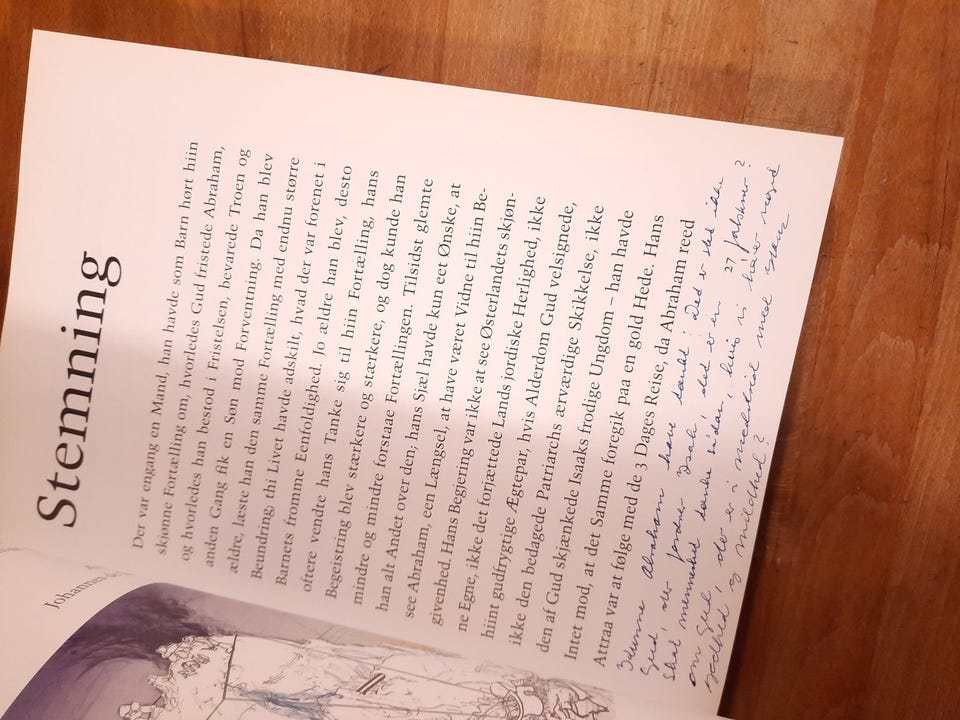 Johannes
Stemning
Der var engang en Mand, han havde som Barn hørt hiin
skjønne Fortælling om, hvorledes Gud fristede Abraham,
og hvorledes han bestod i Fristelsen, bevarede Troen og
anden Gang fik en Søn mod Forventning. Da han blev
ældre, læste han den samme Fortælling med endnu større
Beundring; thi Livet havde adskilt, hvad der var forenet i
Barnets fromme Eenfoldighed. Jo ældre han blev, desto
oftere vendte hans Tanke sig til hiin Fortælling, hans
Begeistring blev stærkere og stærkere, og dog kunde han
mindre og mindre forstaae Fortællingen. Tilsidst glemte
han alt Andet over den; hans Sjæl havde kun eet Ønske, at
see Abraham, een Længsel, at have været Vidne til hiin Be-
givenhed. Hans Begjering var ikke at see Østerlandets skjøn-
ne Egne, ikke det forjættede Lands jordiske Herlighed, ikke
hiint gudfrygtige Ægtepar, hvis Alderdom Gud velsignede,
ikke den bedagede Patriarchs ærværdige Skikkelse, ikke
den af Gud skjænkede Isaaks frodige Ungdom – han havde
Intet mod, at det Samme foregik paa en gold Hede. Hans
Attraa var at følge med de 3 Dages Reise, da Abraham reed
Abraham han
Gud, der Isaak
mennesket tænke sådan, hvis 27
om Gud er i modstrid med
godhed og mildhed?